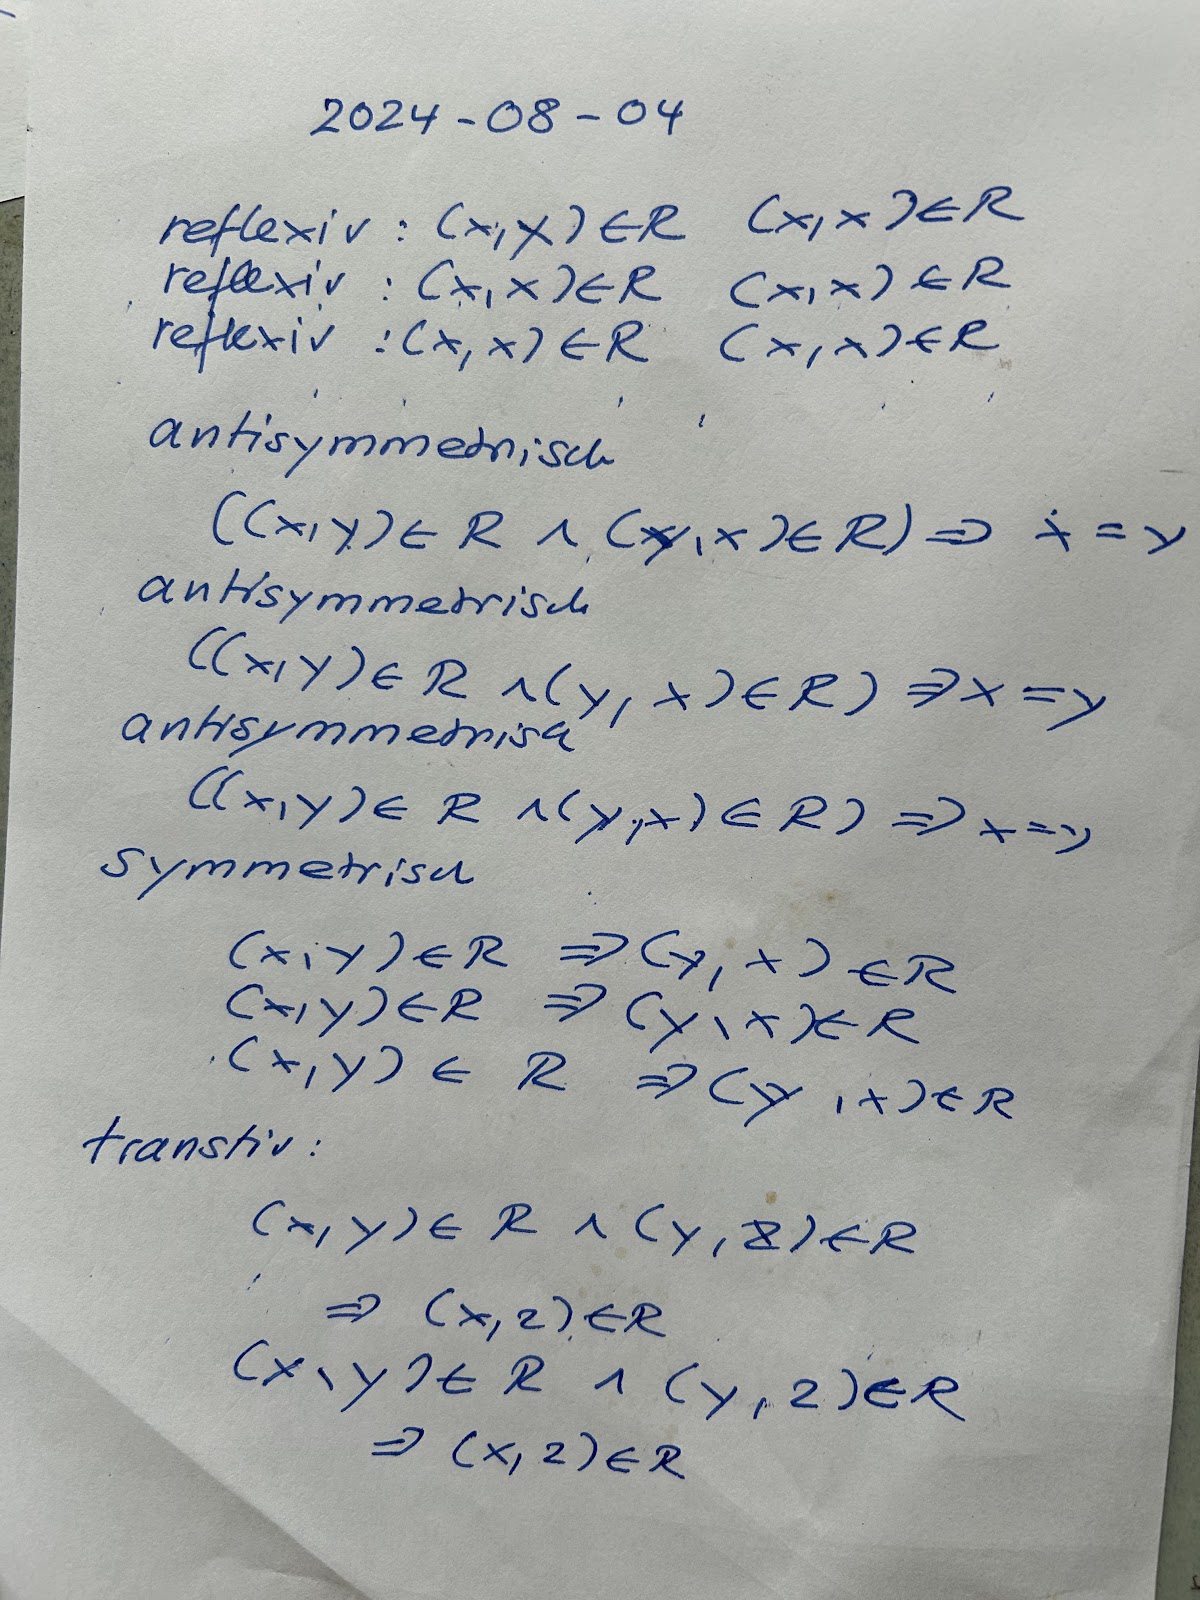 2024-08-04
reflexiv : (x,x) ∈ R (x,x) ∈ R
reflexiv : (x,x) ∈ R (x,x) ∈ R
reflexiv : (x,x) ∈ R (x,x) ∈ R
antisymmetrisch
((x,y) ∈ R ∧ (y,x) ∈ R) ⇒ x = y
antisymmetrisch
((x,y) ∈ R ∧ (y,x) ∈ R) ⇒ x = y
antisymmetrisch
((x,y) ∈ R ∧ (y,x) ∈ R) ⇒ x = y
symmetrisch
(x,y) ∈ R ⇒ (y,x) ∈ R
(x,y) ∈ R ⇒ (y,x) ∈ R
(x,y) ∈ R ⇒ (y,x) ∈ R
transtiv:
(x,y) ∈ R ∧ (y,z) ∈ R
⇒ (x,z) ∈ R
(x,y) ∈ R ∧ (y,z) ∈ R
⇒ (x,z) ∈ R